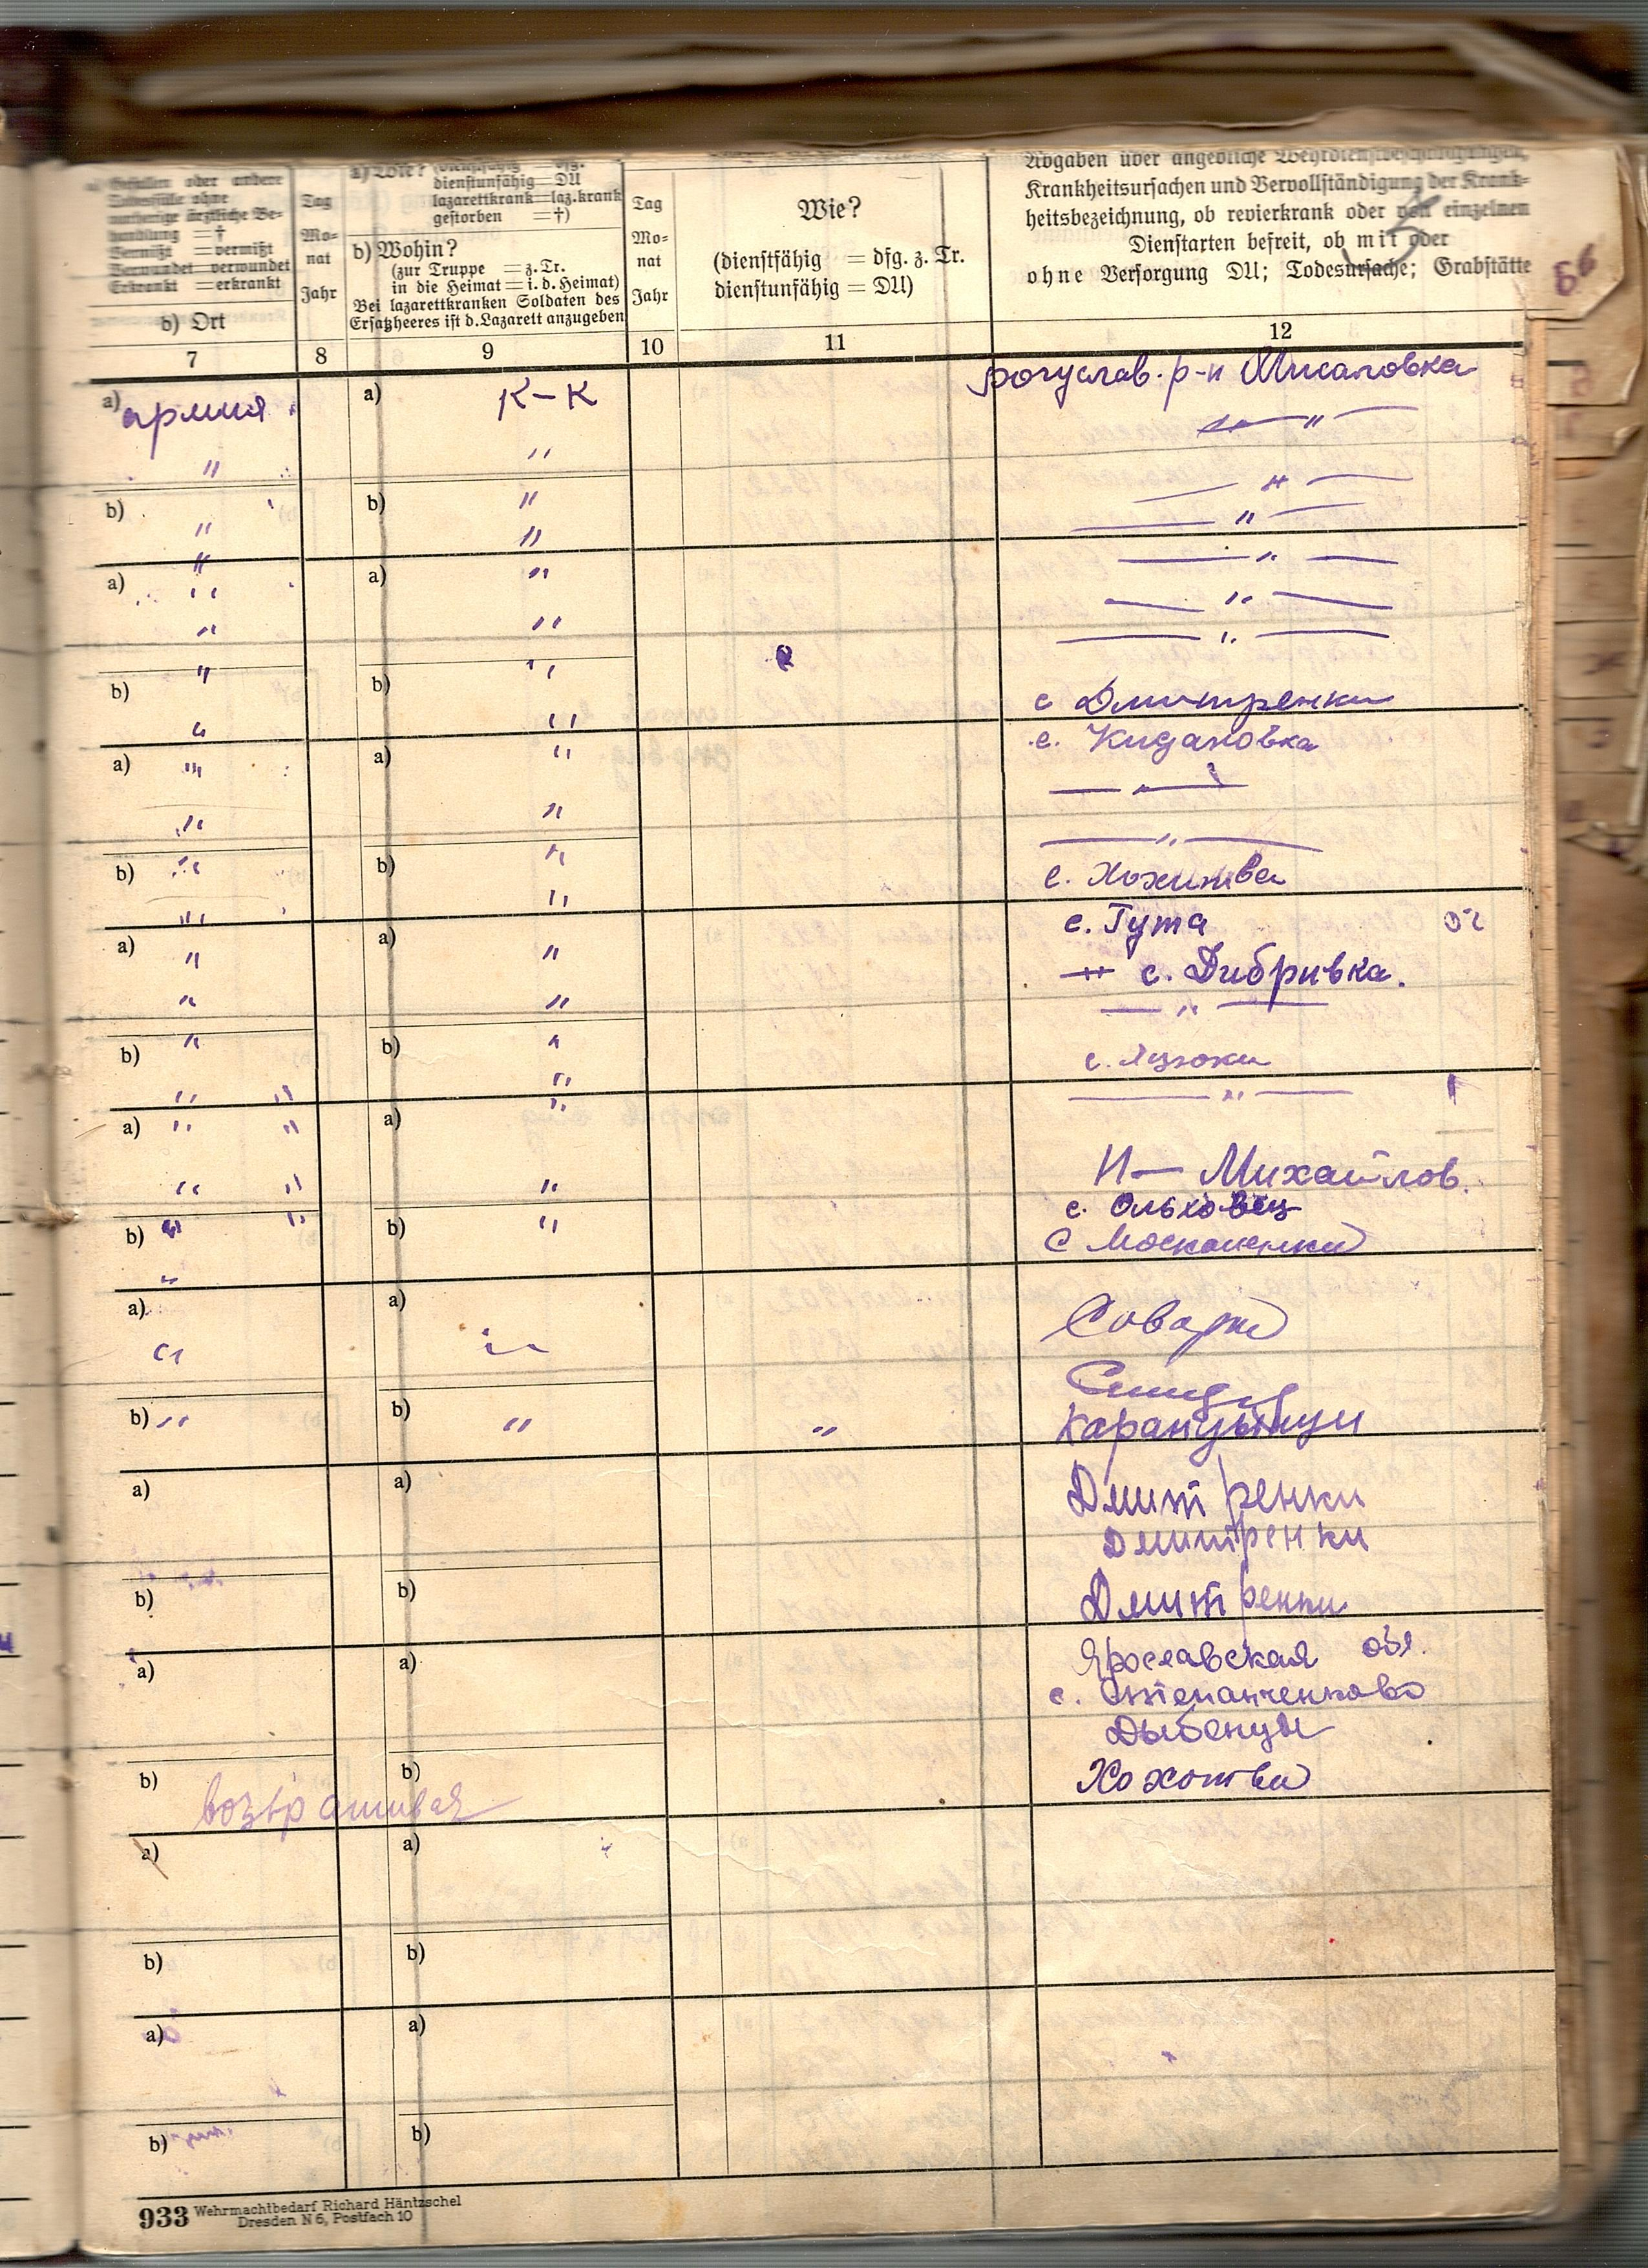 a) Gefallen oder andere
Todesfälle ohne
vorherige ärztliche Be-
handlung = †
Vermißt = vermißt
Verwundet = verwundet
Erkrankt = erkrankt
b) Ort
Tag
Mo-
nat
Jahr
a) Wie? (dienstfähig = dfg.
dienstunfähig = DU
lazarettkrank = laz.krank
gestorben = †)
b) Wohin?
(zur Truppe = z. Tr.
in die Heimat = i. d. Heimat)
Bei lazarettkranken Soldaten des
Ersatzheeres ist d. Lazarett anzugeben
Tag
Mo-
nat
Jahr
Wie?
(dienstfähig = dfg. z. Tr.
dienstunfähig = DU)
Krankheitsursachen und Vervollständigung der Krank-
heitsbezeichnung, ob revierkrank oder von einzelnen
Dienstarten befreit, ob mit oder
ohne Versorgung DU; Todesursache; Grabstätte
7 8 9 10 11 12
a) армия a) К-К богуслав. р-н Мисаловка
" " — " —
" — " —
b) " b) " — " —
" " — " —
a) " a) " — " —
" " — " —
b) " b) " с Дмитренки
" " с. Кидановка
a) " a) " — " —
" " — " —
b) " b) " с. Хохитва
" " с. Гута
a) " a) " с. Дибривка.
" " — " —
b) " b) " с. Яцюки
" " " — " —
a) " " a)
" " " Н — Михайлов.
b) " " b) " с. Ольховец
" С Москаленки
a) a)
" "
b) " b) " "
a) a) Дмитренки
Дмитренки
b) b) Дмитренки
a) a) Ярославская обл.
с. Степанченково
Дыбенцы
b) b) Хохотва
a) a)
b) b)
a) a)
b) b)
933 Wehrmachtbedarf Richard Häntzschel
Dresden N 6, Postfach 10